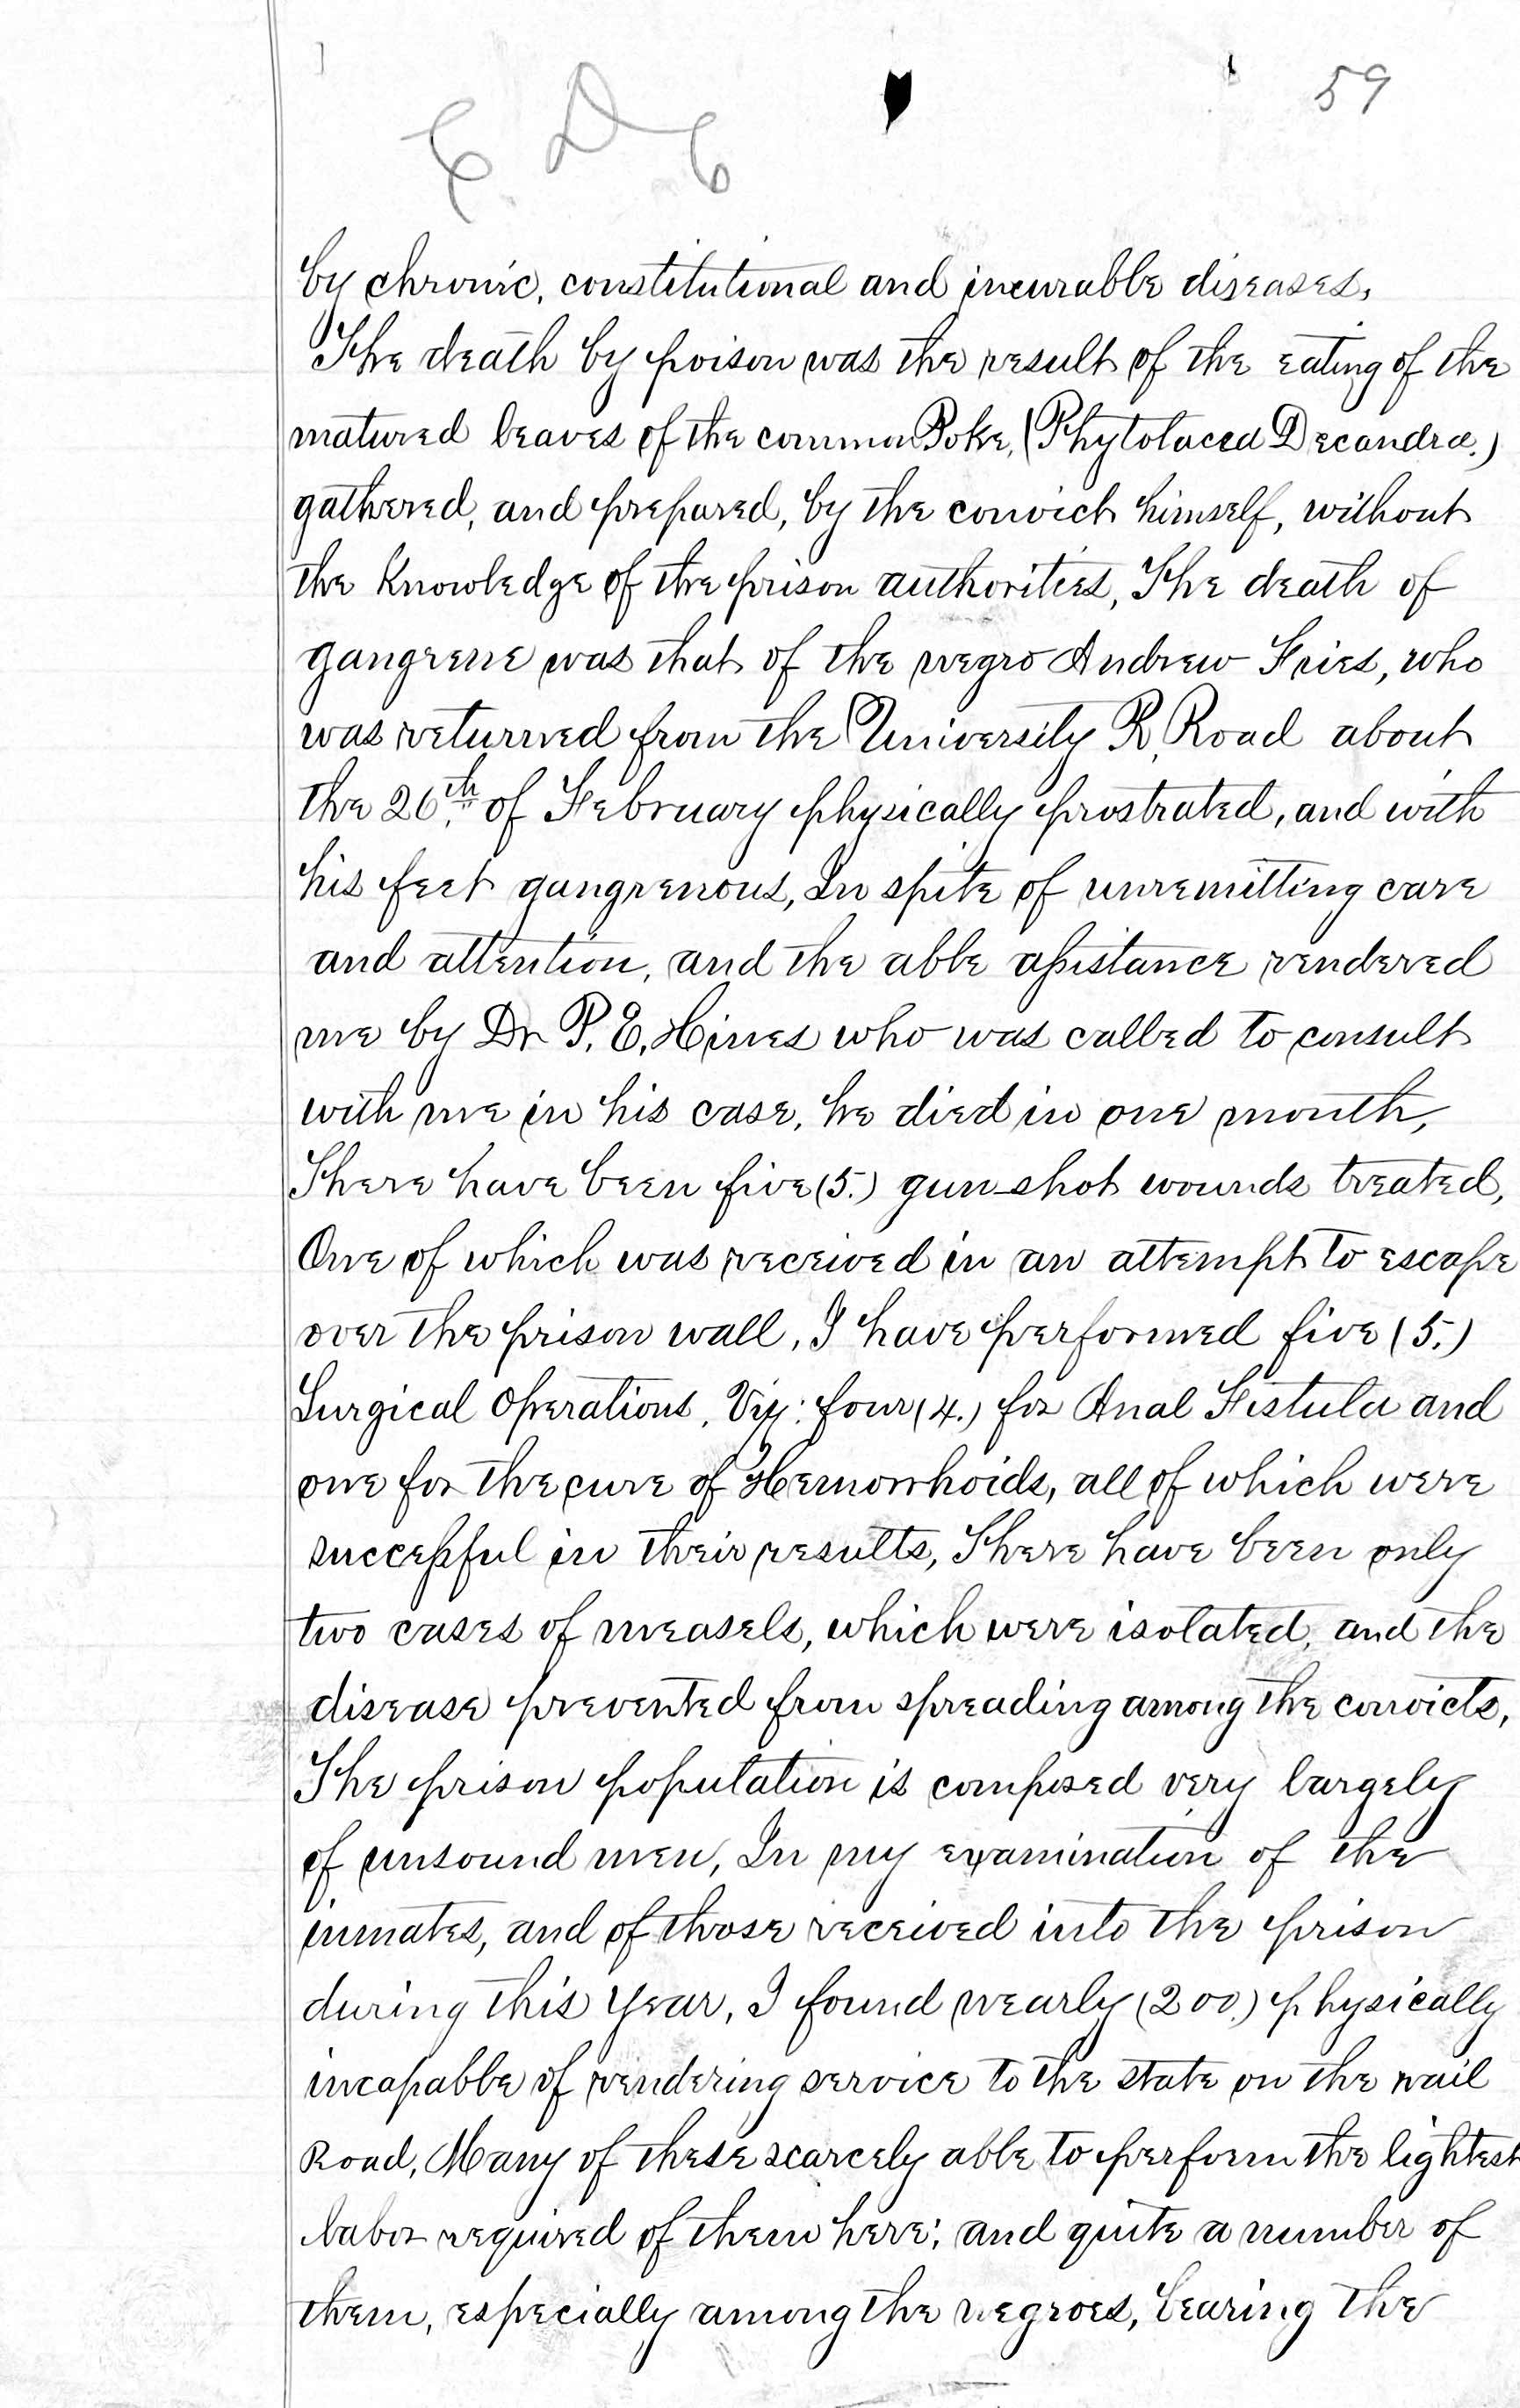 59
by chronic, constitutional and incurable diseases,
The death by poison was the result of the eating of the
matured leaves of the common Poke, (Phytolacca Decandra.)
gathered, and prepared, by the convict himself, without
the Knowledge of the prison authorities, The death of
gangrene was that of the negro Andrew Fries, who
was returned from the University R, Road about
the 26th of February physically prostrated, and with
his feet gangrenous, In spite of unremitting care
and attention, and the able assistance rendered
me by Dr P. E. Hines who was called to consult
with me in his case, he died in one month,
There have been five (5.) gun-shot wounds treated,
One of which was received in an attempt to escape
over the prison wall, I have performed five (5.)
Surgical Operations, Viz: four (4.) for Anal Fistula and
one for the cure of Hemorrhoids, all of which were
successful in their results, There have been only
two cases of measels, which were isolated, and the
disease prevented from spreading among the convicts,
The prison population is composed very largely
of unsound men, In my examination of the
inmates, and of those received into the prison
during this year, I found nearly (200.) physically
incapable of rendering service to the state on the rail
Road, Many of these scarcely able to perform the lightest
labor required of them here; and quite a number of
them, especially among the negroes, bearing the